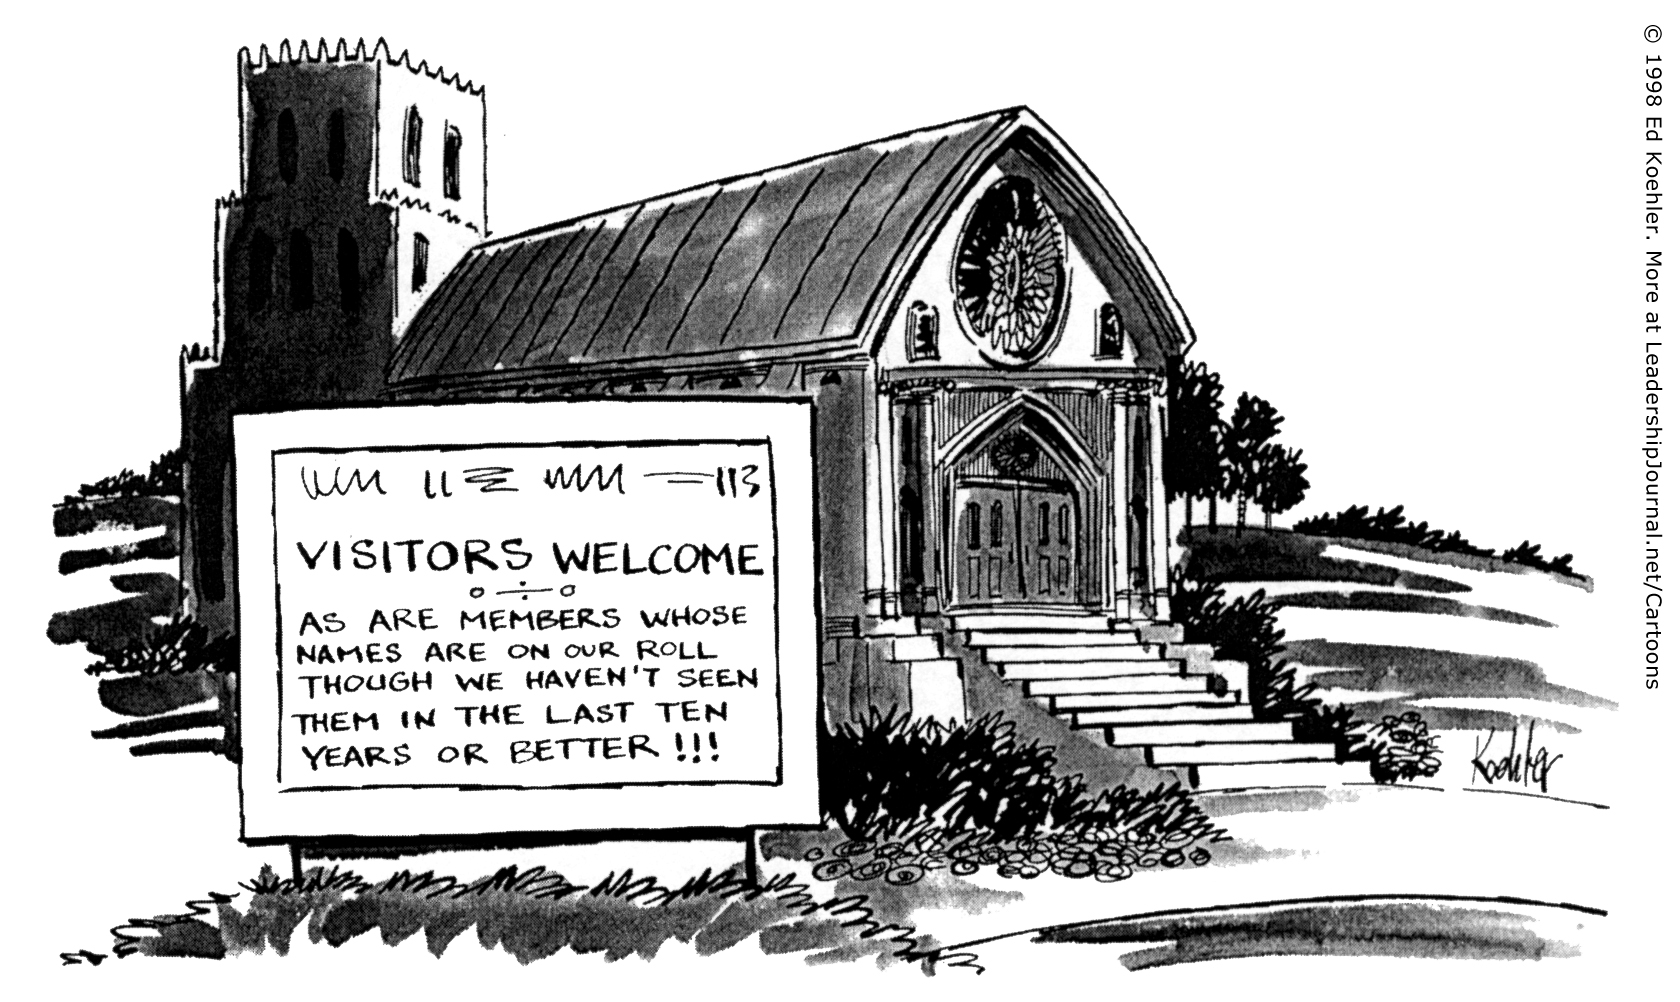 VISITORS WELCOME
AS ARE MEMBERS WHOSE
NAMES ARE ON OUR ROLL
THOUGH WE HAVEN'T SEEN
THEM IN THE LAST TEN
YEARS OR BETTER!!!
Koehler
© 1998 Ed Koehler. More at LeadershipJournal.net/Cartoons